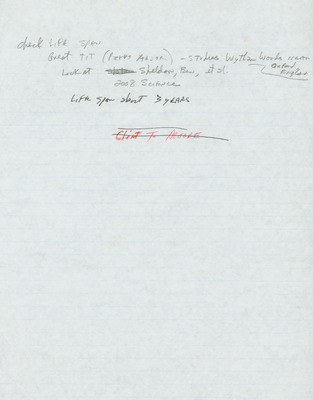 check Life span
Great TIT (Parus Major) - studies Wytham Woods near
Oxford,
England
Look at Sheldon, Ben, et al.
2008 Science
Life span about 3 years